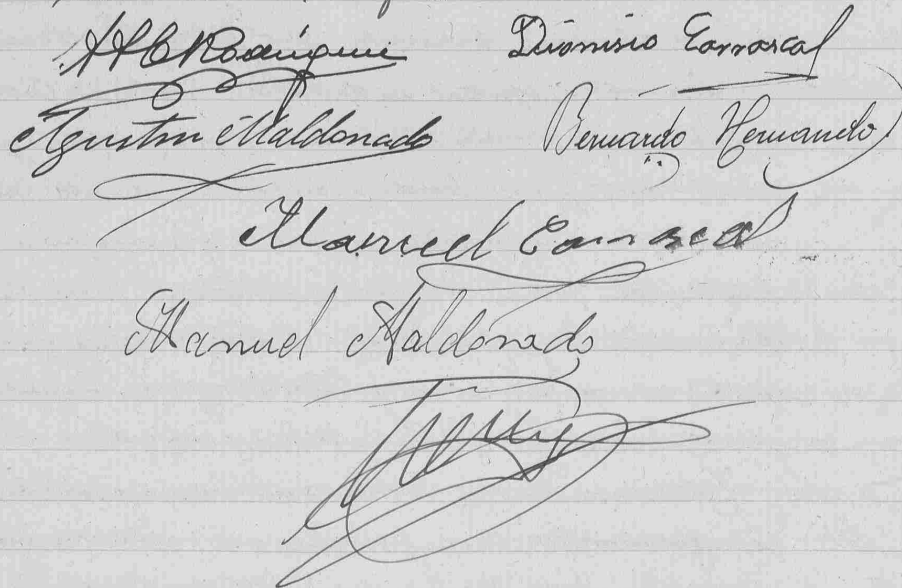 Rodríguez Dionisio Carrascal
Agustin Maldonado Bernardo Hernando
Manuel Carrascal
Manuel Maldonado